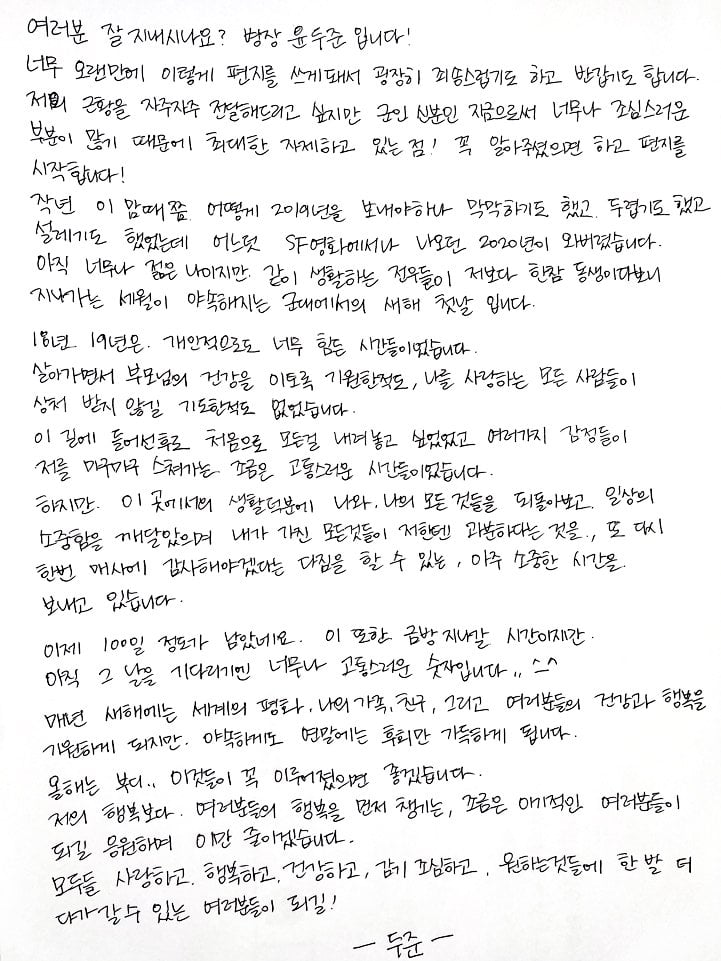 여러분 잘 지내시나요? 병장 윤두준 입니다!
너무 오랜만에 이렇게 편지를 쓰게돼서 굉장히 죄송스럽기도 하고 반갑기도 합니다.
저의 근황을 자주자주 전달해드리고 싶지만 군인 신분인 지금으로써 너무나 조심스러운
부분이 많기 때문에 최대한 자제하고 있는 점! 꼭 알아주셨으면 하고 편지를
시작합니다!
작년 이 맘때쯤 어떻게 2019년을 보내야하나 막막하기도 했고, 두렵기도 했고
설레기도 했었는데 어느덧 SF영화에서나 나오던 2020년이 와버렸습니다.
아직 너무나 젊은 나이지만, 같이 생활하는 전우들이 저보다 한참 동생이다보니
지나가는 세월이 야속해지는 군대에서의 새해 첫날 입니다.
18년. 19년은. 개인적으로도 너무 힘든 시간들이었습니다.
살아가면서 부모님의 건강을 이토록 기원한적도, 나를 사랑하는 모든 사람들이
상처 받지 않길 기도한적도 없었습니다.
이 길에 들어선후로 처음으로 모든걸 내려놓고 싶었었고 여러가지 감정들이
저를 마구마구 스쳐가는 조금은 고통스러운 시간들이었습니다.
하지만. 이 곳에서의 생활덕분에 나와, 나의 모든 것들을 되돌아보고, 일상의
소중함을 깨달았으며 내가 가진 모든것들이 저한텐 과분하다는 것을., 또 다시
한번 매사에 감사해야겠다는 다짐을 할 수 있는, 아주 소중한 시간을
보내고 있습니다.
이제 100일 정도가 남았네요. 이 또한 금방 지나갈 시간이지만.
아직 그 날을 기다리기엔 너무나 고통스러운 숫자입니다.. ^^
매년 새해에는 세계의 평화, 나의 가족, 친구, 그리고 여러분들의 건강과 행복을
기원하게 되지만. 야속하게도 연말에는 후회만 가득하게 됩니다.
올해는 부디.. 이것들이 꼭 이루어졌으면 좋겠습니다.
저의 행복보다. 여러분들의 행복을 먼저 챙기는, 조금은 이기적인 여러분들이
되길 응원하며 이만 줄이겠습니다.
모두들 사랑하고, 행복하고, 건강하고, 감기 조심하고, 원하는것들에 한 발 더
다가 갈 수 있는 여러분들이 되길!
— 두준 —